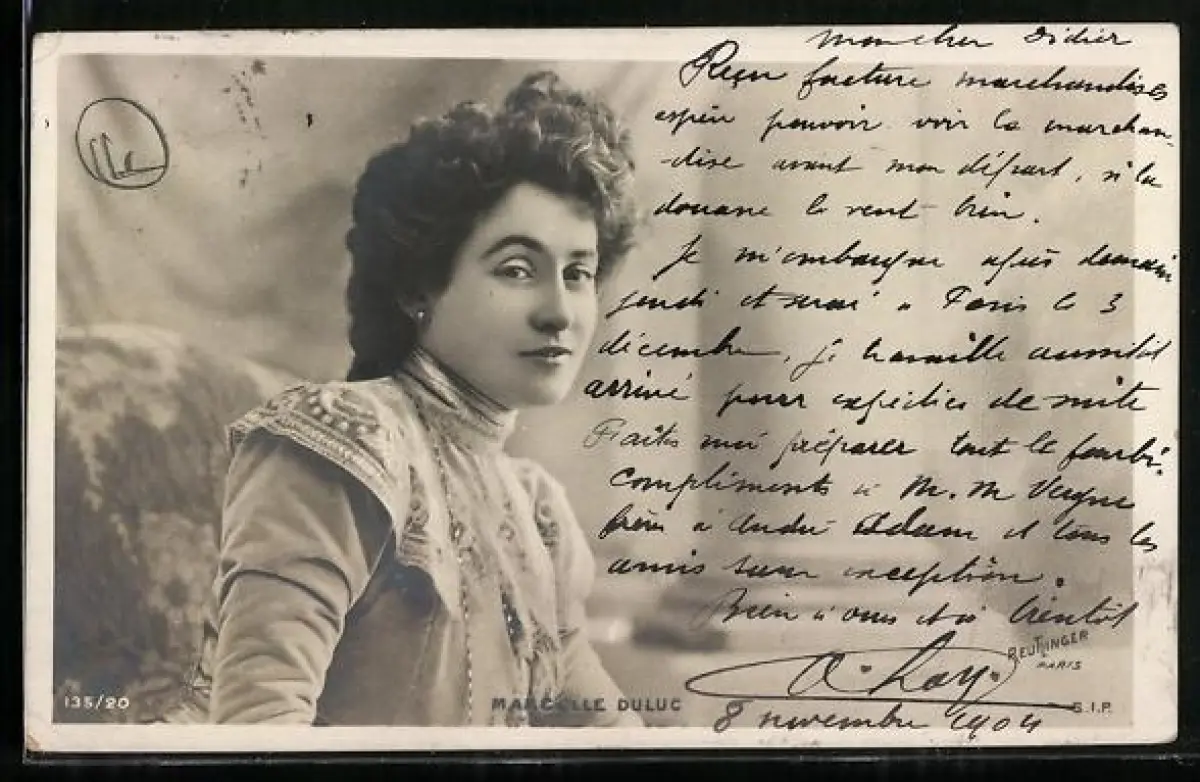 mon cher Didier
Reçu facture marchandises
espère pouvoir voir la marchan-
dise avant mon départ, si la
douane le veut bien.
Je m'embarque après demain
jeudi et serai à Paris le 3
décembre, je travaille aussitôt
arrivé pour expédier de suite
Faites moi préparer tout le fourbi.
compliments à M. M Vergne
frère à André Adam et tous les
amis sans exception.
Bien à vous et à bientôt
8 novembre 1904
REUTLINGER
PARIS
135/20
MARCELLE DULUC
S.I.P.